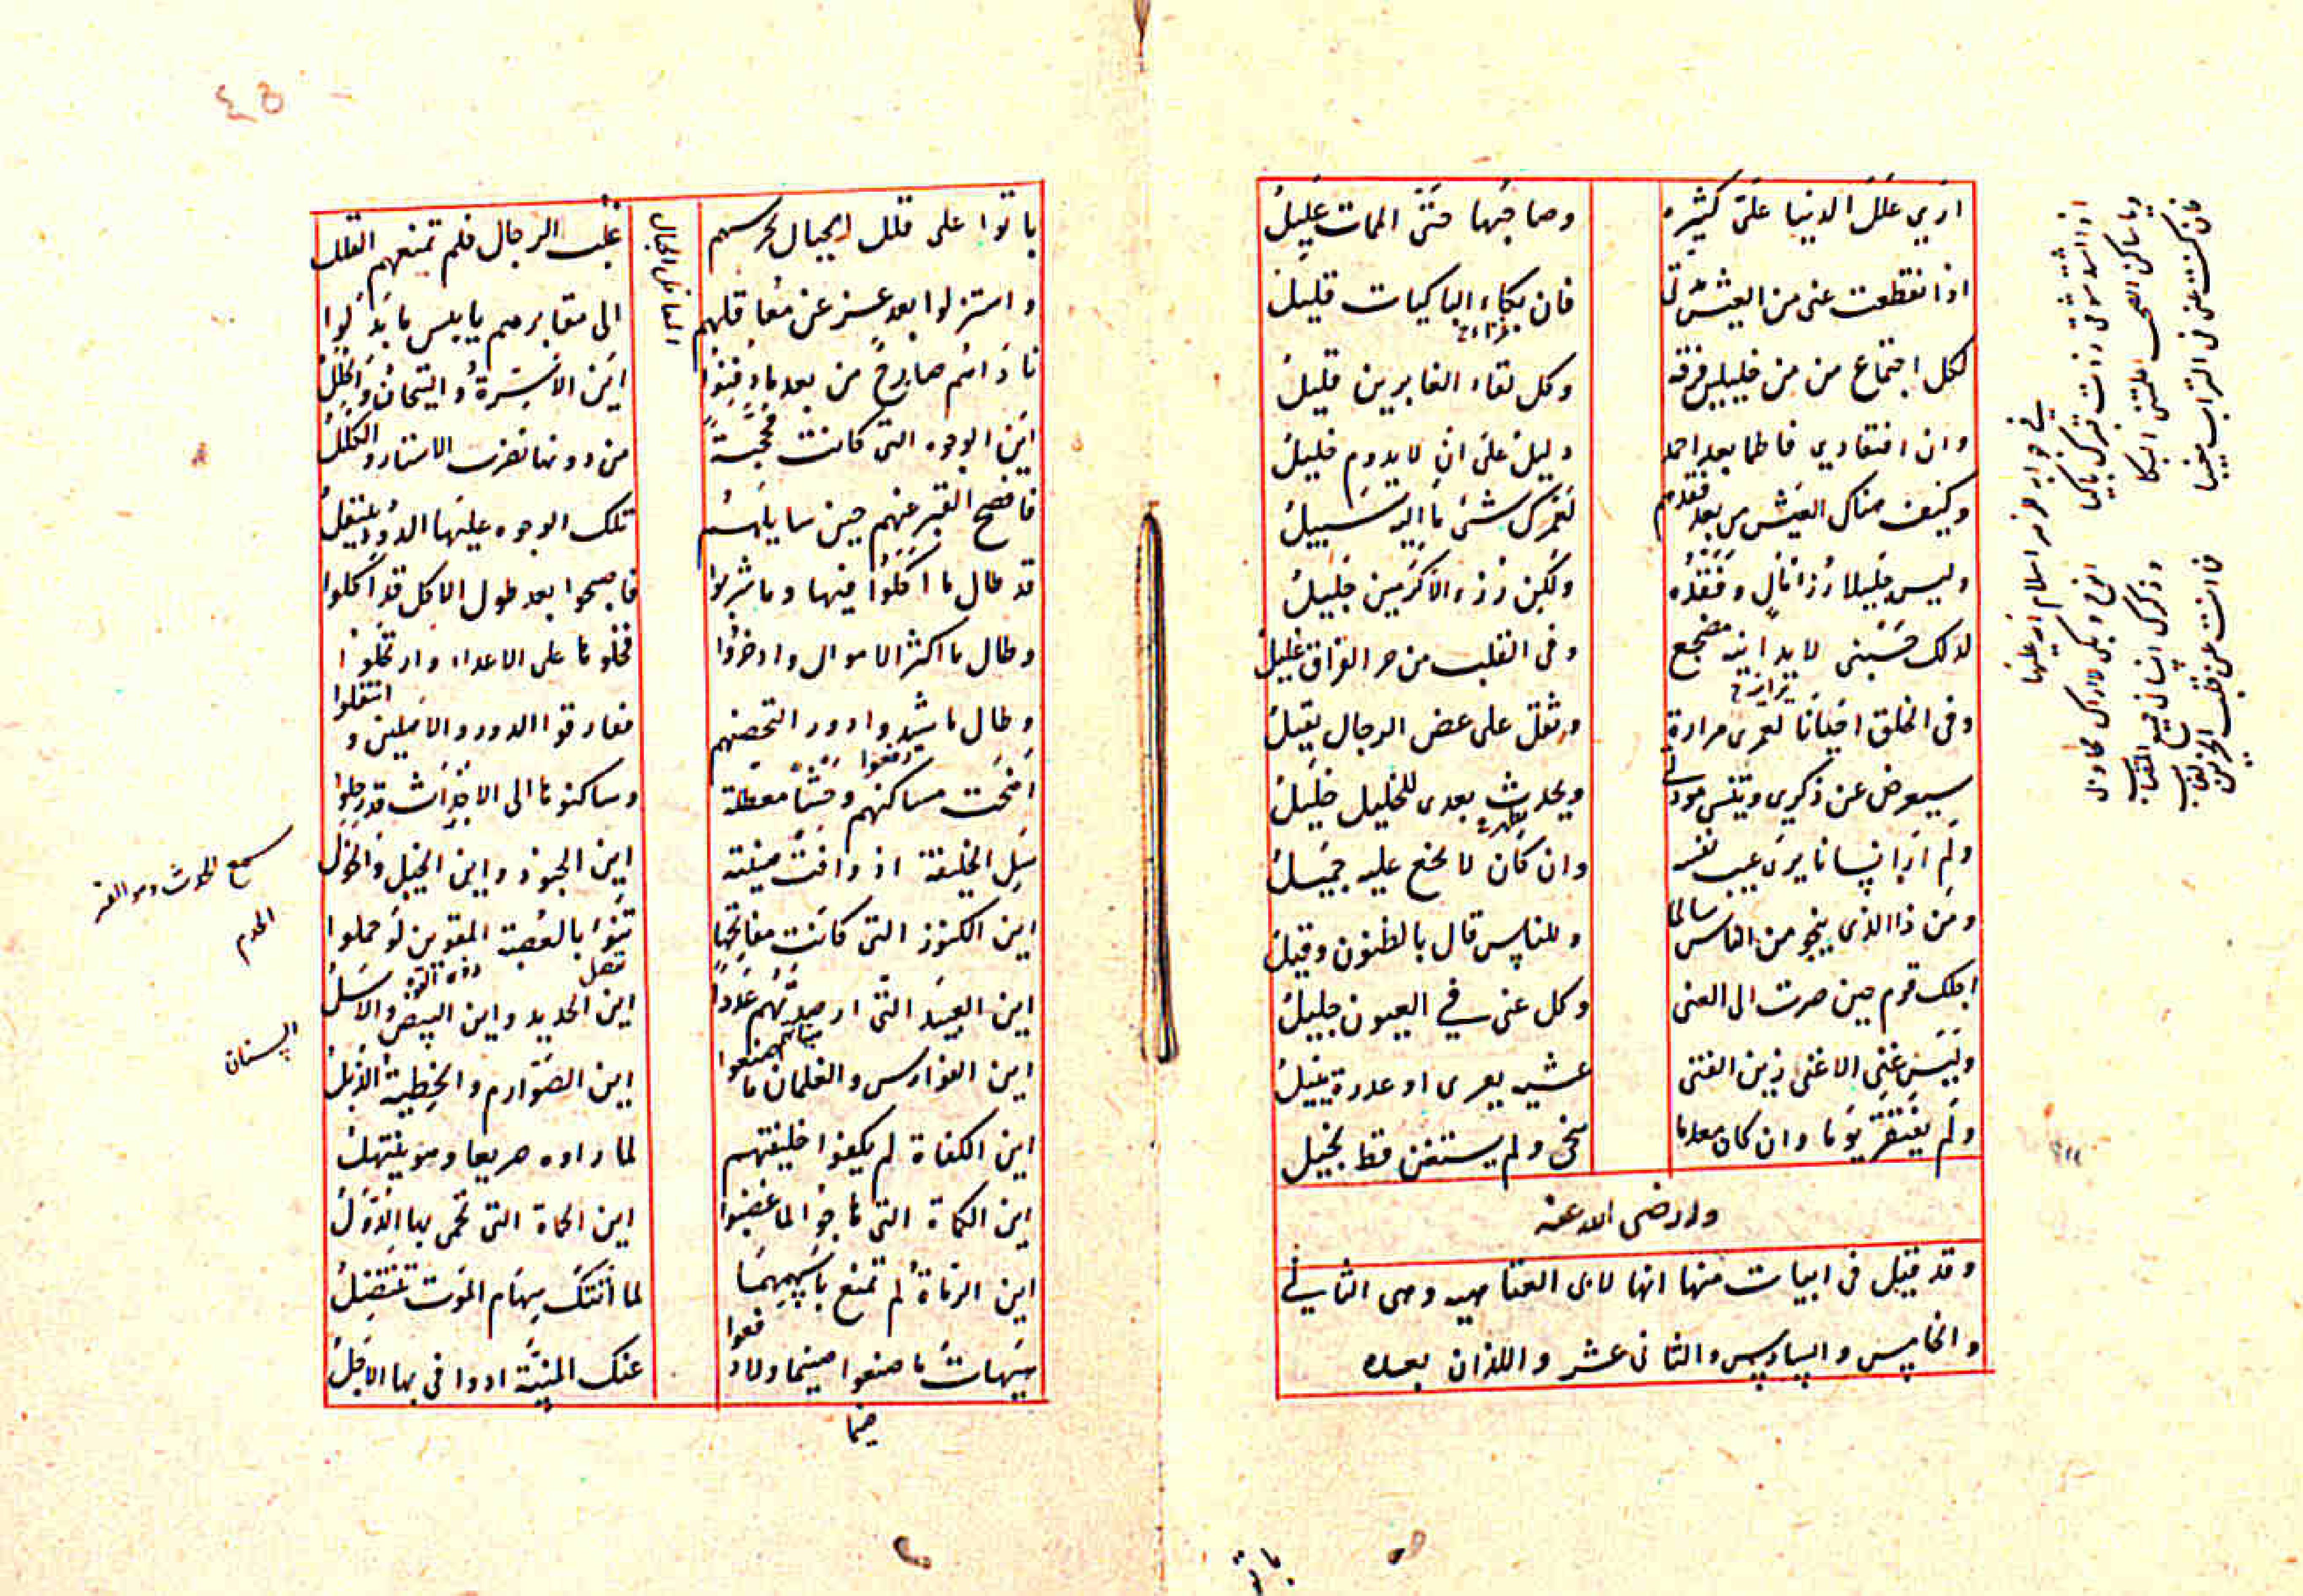 ارى علل الدنيا علىّ كثيره وصاحبها حتى الممات عليل
اذا انقطعت عنى من العيش فان بكاء الباكيات قليل
لكل اجتماع من من خليلين فرقة وكل لقاء الغابرين قليل
وان افتقادى فاطما بعد احمد دليل على ان لا يدوم خليل
وكيف هناك العيش من بعد فقدهم لعمرك شئ ما اليه سبيل
وليس جليلا رزء مال وفقده ولكن رزء الاكرمين جليل
لذلك جنبى لا يواتيه مضجع وفى القلب من حر الفراق غليل
وفى الخلق احيانا لعمرى مرارة وثقل على عض الرجال ثقيل
سيعرض عن ذكرى وتنسى مودتى ويحدث بعدى للخليل خليل
ولم ار انسانا يرى عيب نفسه وان كان لا يخفى عليه جميل
ومن ذا الذى ينجو من الناس سالما وللناس قال بالظنون وقيل
اجلك قوم حين صرت الى الغنى وكل غنى في العيون جليل
وليس غنى الا غنى زين الفتى عشية يقرى او غداة ينيل
ولم يفتقر يوما وان كان معدما سخى ولم يستغن قط بخيل
وله رضى الله عنه
وقد قيل فى ابيات منها انها لابى العتاهيه وهى الثاني
والخامس والسادس والثانى عشر واللذان بعده
ما لى
اذا اشتد شوقى زرت قبرك باكيا
انوح وابكى لا اراك مجاوبى
ويا ساكن الصحراء علمتنى البكا
وذكرك انسانى جميع المصائب
فان كنت عنى فى التراب مغيبا
فما كنت عن قلب الحزين بغائب
باتوا
٤٥
باتوا على قلل الجبال تحرسهم غلب الرجال فلم تمنعهم القلل
واستنزلوا بعد عز عن معاقلهم الى مقابرهم يا بئس ما نزلوا
ناداهم صارخ من بعد ما دفنوا اين الاسرة والتيجان والحلل
اين الوجوه التى كانت محجبة من دونها تضرب الاستار والكلل
فافصح القبر عنهم حين سايلهم تلك الوجوه عليها الدود تنتقل
قد طال ما اكلوا فيها وما شربوا فاصبحوا بعد طول الاكل قد اكلوا
وطال ما اكثروا الاموال وادخروا فخلوها على الاعداء وارتحلوا
وطال ما شيدوا دورا لتحصنهم ففارقوا الدور والاهلين و انتقلوا
اضحت مساكنهم وحشا معطلة وساكنوها الى الاجداث قد رحلوا
سل الخليفة اذ وافت منيته اين الجنود واين الخيل والخول
اين الكنوز التى كانت مفاتحها تنوء بالعصبة المقوين لو حملوا
اين العبيد التى ارصدتهم عددا اين الحديد واين البيض والاسل
اين الفوارس والغلمان ما صنعوا اين الصوارم والخطية الذبل
اين الكفاة لم يكفوا خليفتهم لما راوه صريعا وهو يبتهل
اين الكماة التى ماجوا لما غضبوا اين الحماة التى تحمى بها الدول
اين الرماة لم تمنع باسهمها لما اتتك سهام الموت تنتضل
هيهات ما منعوا ضيما ولا دفعوا عنك المنية اذ وافى بها الاجل
السنان
ضيما